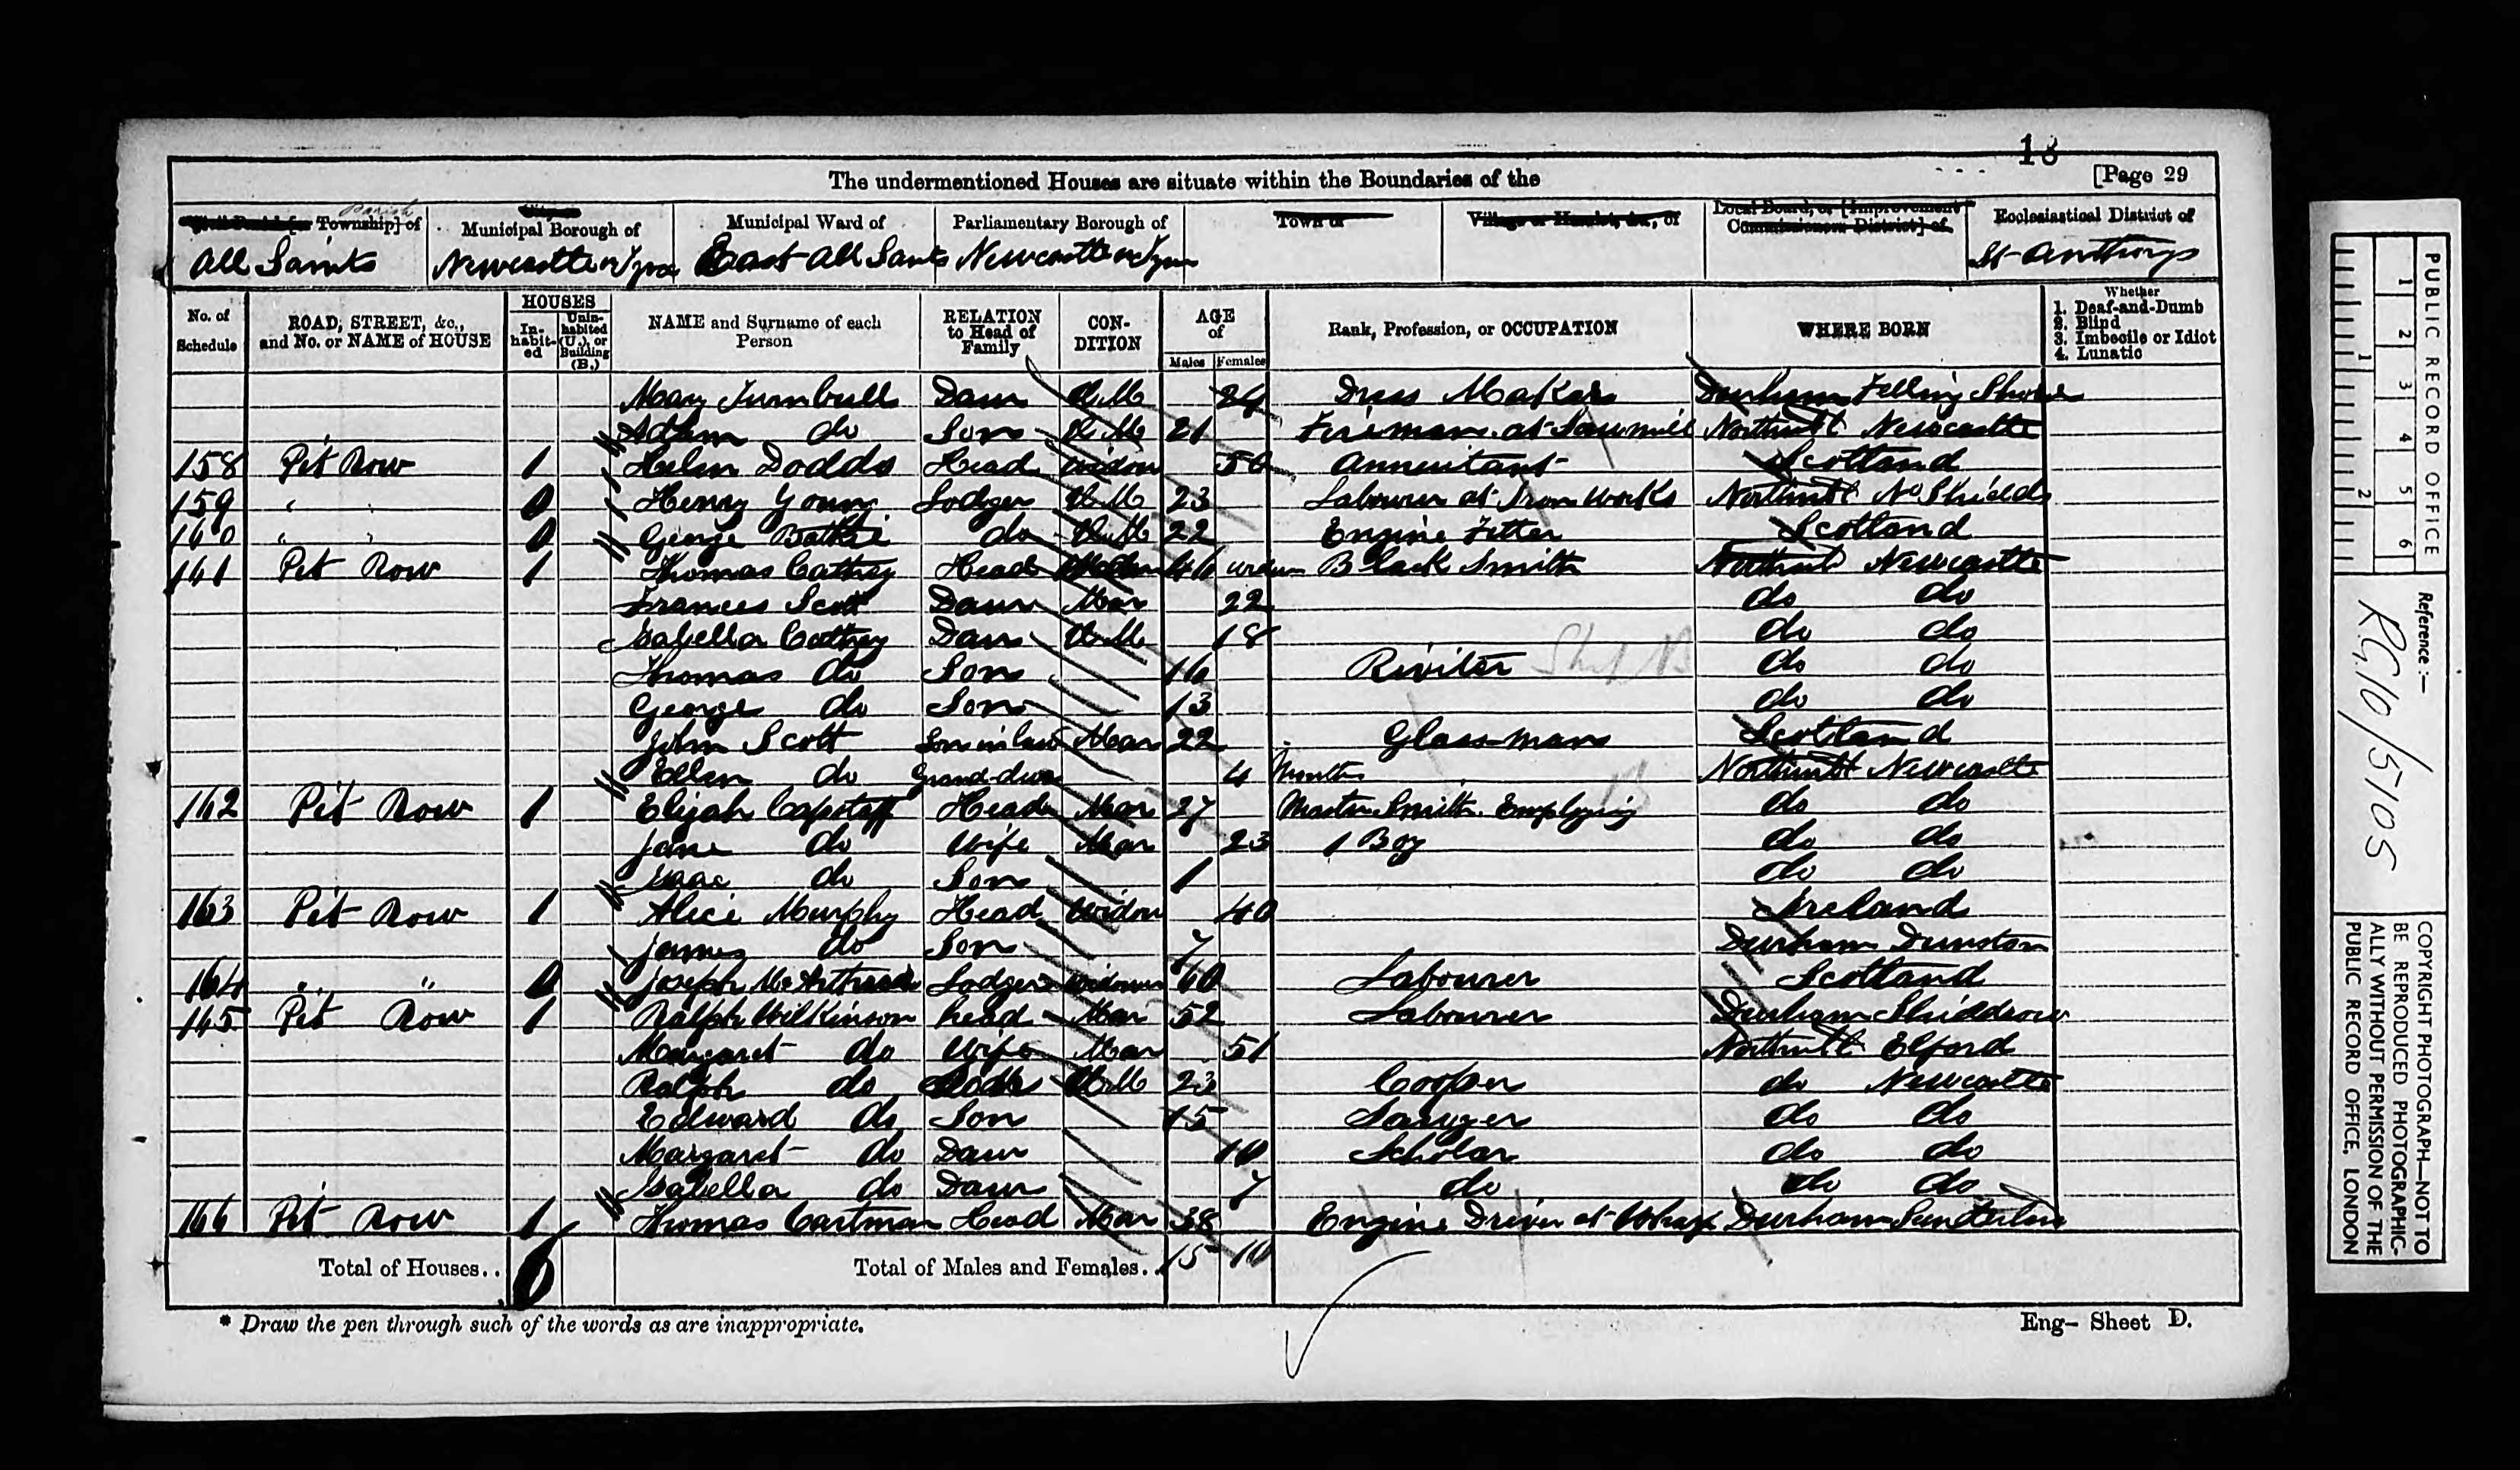 18
The undermentioned Houses are situate within the Boundaries of the [Page 29
Township] of Parish
All Saints
City or
Municipal Borough of
Newcastle on Tyne
Municipal Ward of
East All Saints
Parliamentary Borough of
Newcastle on Tyne
Town of
Village or Hamlet, &c., of
Local Board, or [Improvement
Commissioners District] of
Ecclesiastical District of
St Anthonys
No. of Schedule
ROAD, STREET, &c., and No. or NAME of HOUSE
HOUSES
In-habit-ed
Unin-habited (U.), or Building (B.)
NAME and Surname of each Person
RELATION to Head of Family
CON-DITION
AGE of
Males Females
Rank, Profession, or OCCUPATION
WHERE BORN
Whether
1. Deaf-and-Dumb
2. Blind
3. Imbecile or Idiot
4. Lunatic
Mary Turnbull Daur U.M 24 Dress Maker Durham Felling Shore
Adam do Son U.M 21 Fireman at Sawmill Northumbd Newcastle
158 Pit Row 1 Helen Dodds Head Widow 50 Annuitant Scotland
159 " " 0 Henry Young Lodger U.M 23 Labourer at Iron Works Northumbd No Shields
160 " " 0 George do U.M 22 Engine Fitter Scotland
161 Pit Row 1 Thomas Cathey Head 46 Black Smith Northumbd Newcastle
Frances Scott Daur Mar 22 do do
Isabella Cathey Daur U.M 18 do do
Thomas do Son 16 Riviter Ship B do do
George do Son 13 do do
John Scott Son in law Mar 22 Glass-man Scotland
Ellen do Grand-daur 4 Months Northumbd Newcastle
162 Pit Row 1 Elijah Capstaff Head Mar 27 Master Smith Employing do do
Jane do Wife Mar 23 1 Boy do do
Isaac do Son 1 do do
163 Pit Row 1 Alice Murphy Head Widow 40 Ireland
James do Son 7 Durham Dunston
164 " " 0 Joseph Lodger Widower 60 Labourer Scotland
165 Pit Row 1 Ralph Wilkinson head Mar 52 Labourer Durham Shieldrow
Margaret do Wife Mar 51 Northumbd Elford
Ralph do U.M 23 Cooper do Newcastle
Edward do Son 15 Sawyer do do
Margaret do Daur 10 Scholar do do
Isabella do Daur 7 do do do
166 Pit Row 1 Thomas Cartman Head Mar 38 Engine Driver at Wharf Durham Sunderland
Total of Houses.. 6 Total of Males and Females.. 15 10
* Draw the pen through such of the words as are inappropriate.
Eng- Sheet D.
PUBLIC RECORD OFFICE
1 2 3 4 5 6
1 2
Reference :-
RG 10/5105
COPYRIGHT PHOTOGRAPH—NOT TO
BE REPRODUCED PHOTOGRAPHIC-
ALLY WITHOUT PERMISSION OF THE
PUBLIC RECORD OFFICE, LONDON